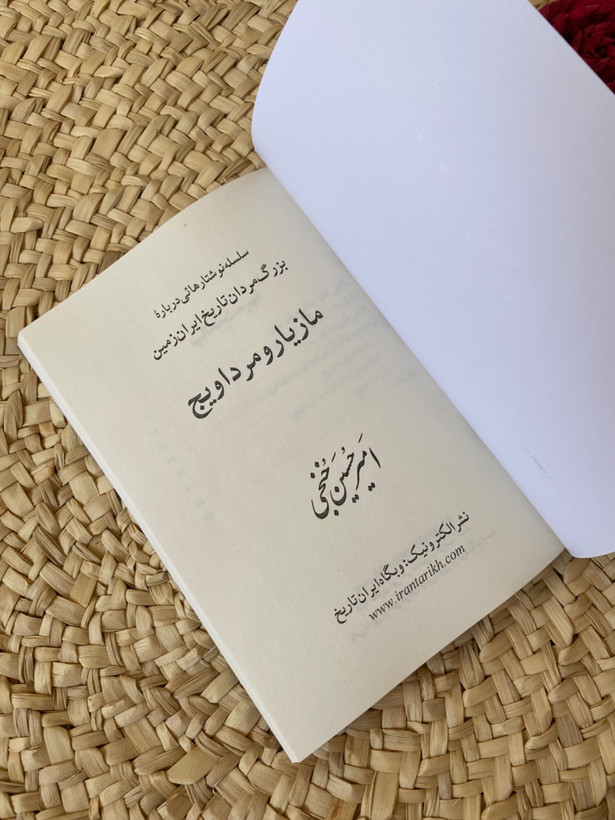 سلسله نوشتارهائی دربارهٔ
بزرگ مردان تاریخ ایران زمین
مازیار و مرداویج
امیرحسین خُنجی
نشر الکترونیک: وبگاه ایران تاریخ
www.irantarikh.com